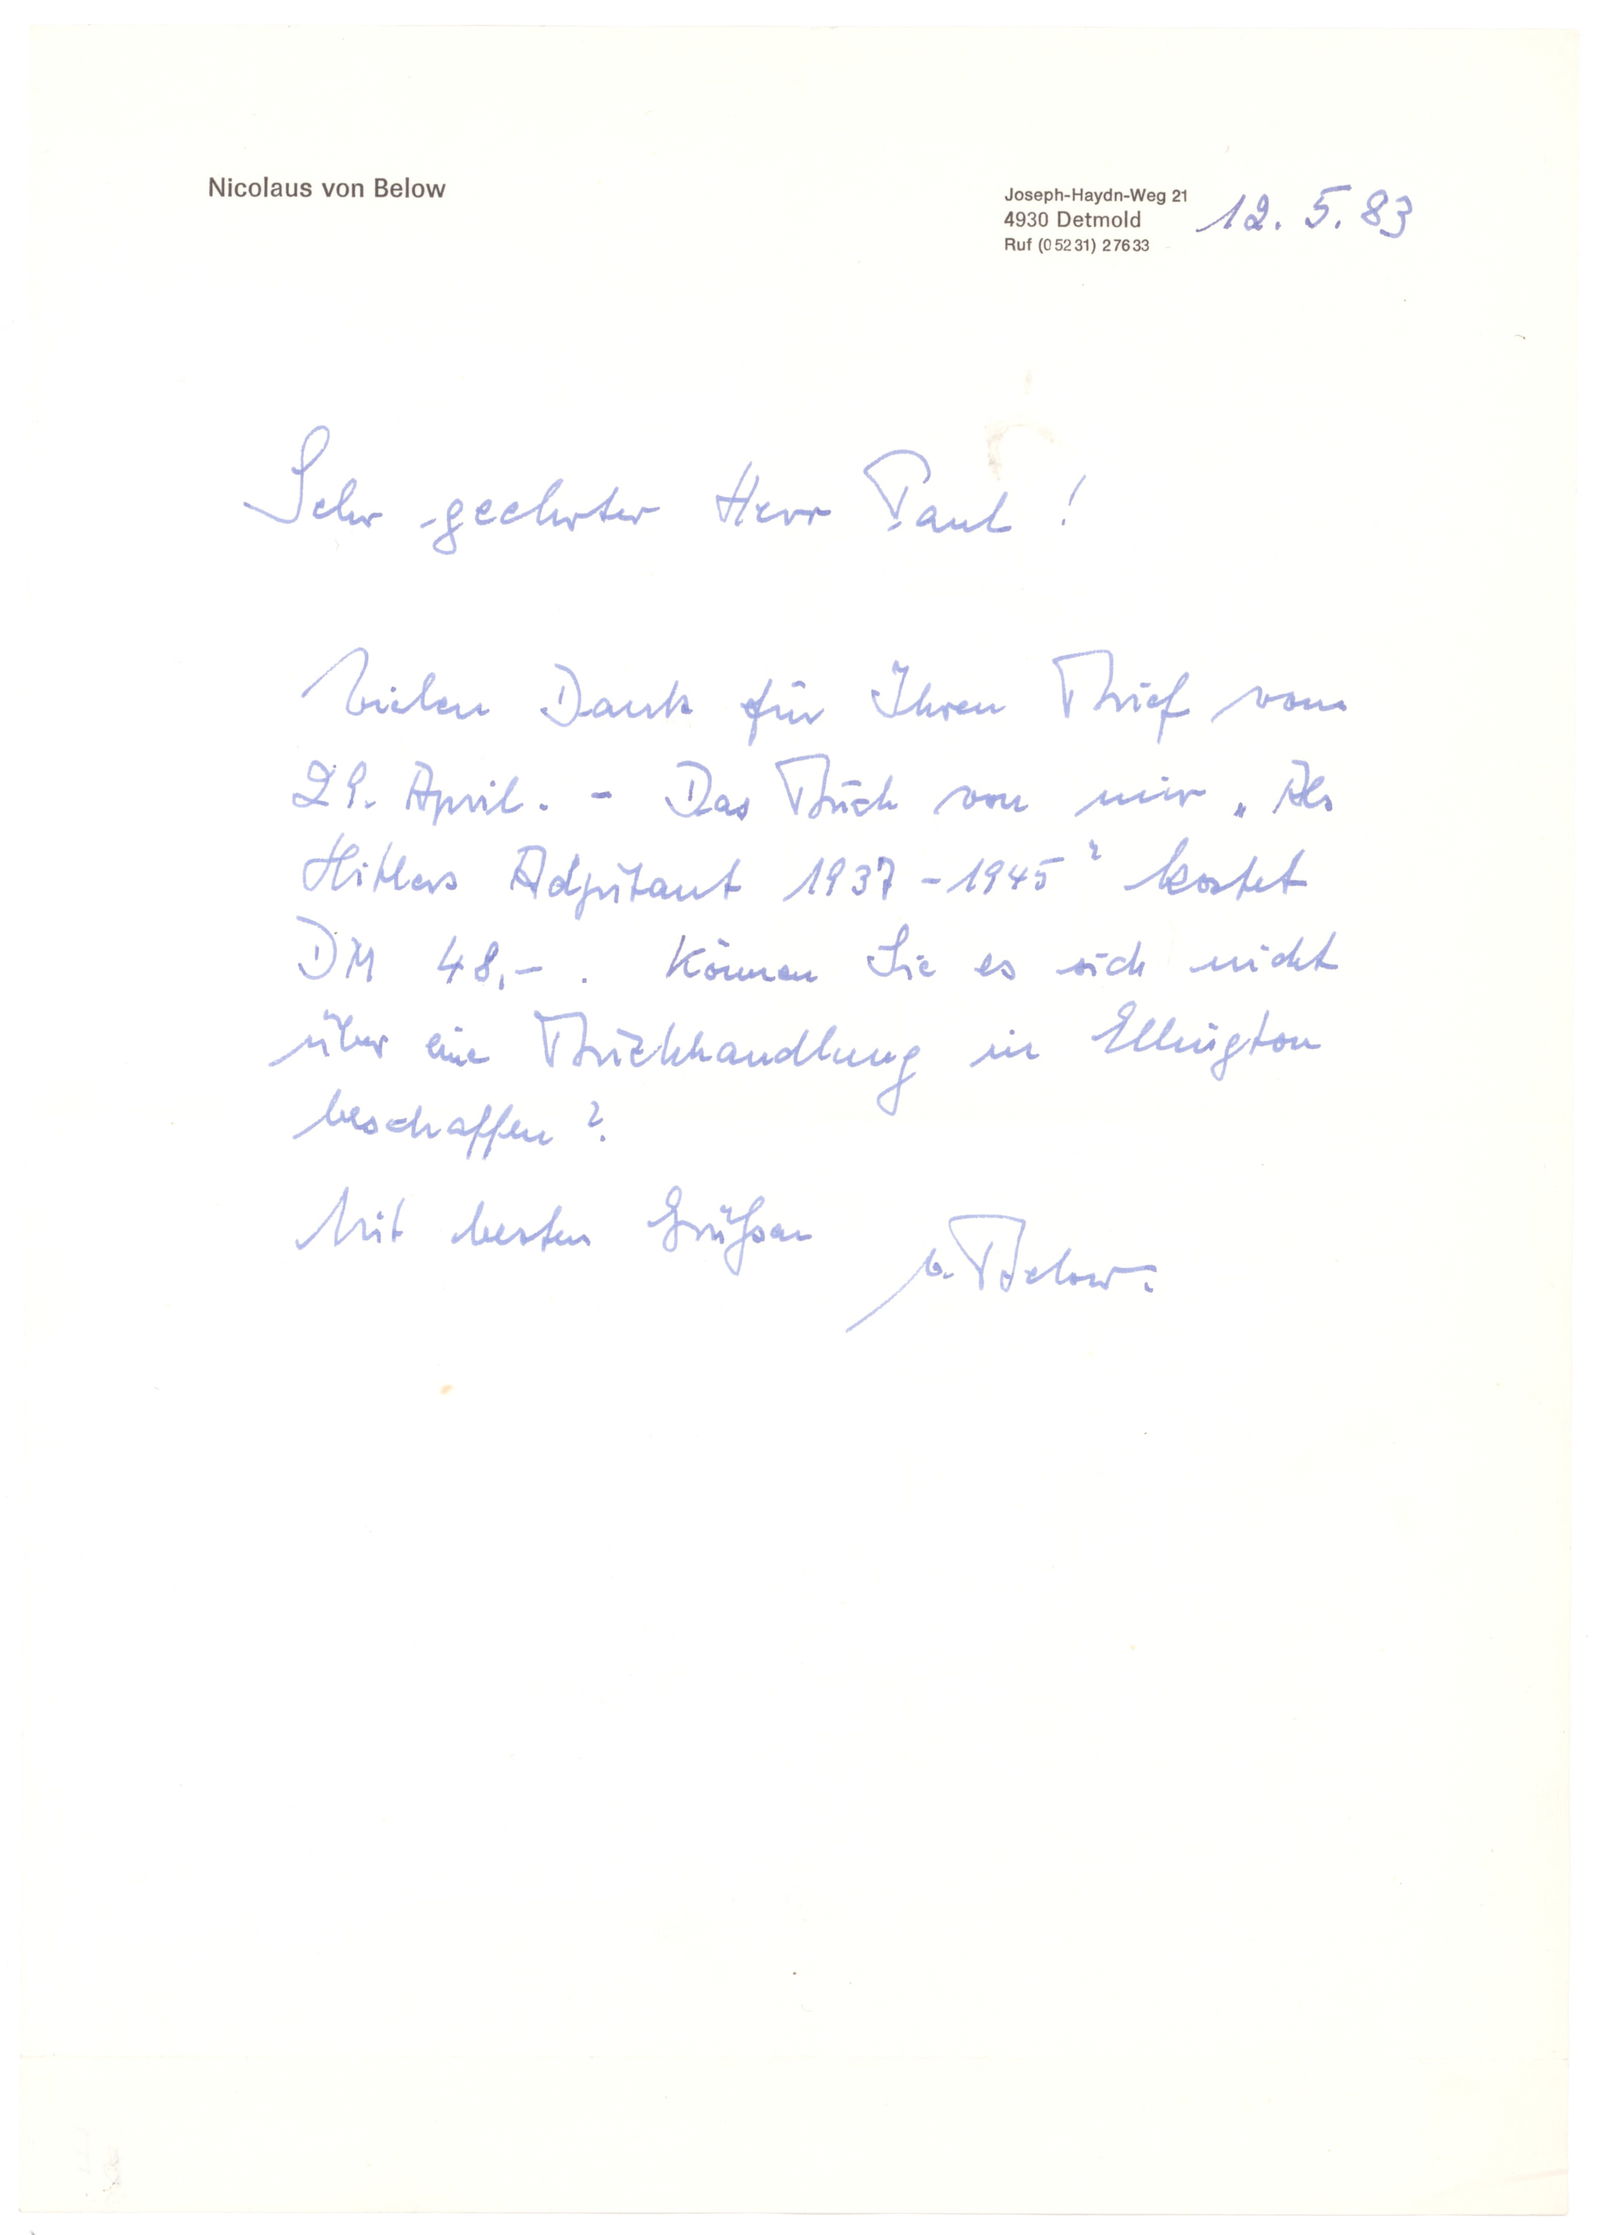 Nicolaus von Below
Joseph-Haydn-Weg 21
4930 Detmold
Ruf (05231) 27633
12. 5. 83
Sehr geehrter Herr Paul!
Vielen Dank für Ihren Brief vom
29. April. - Das Buch von mir „Als
Hitlers Adjutant 1937-1945" kostet
DM 48,-. Können Sie es sich nicht
über eine Buchhandlung in Ellington
beschaffen?
Mit besten Grüßen
v. Below.